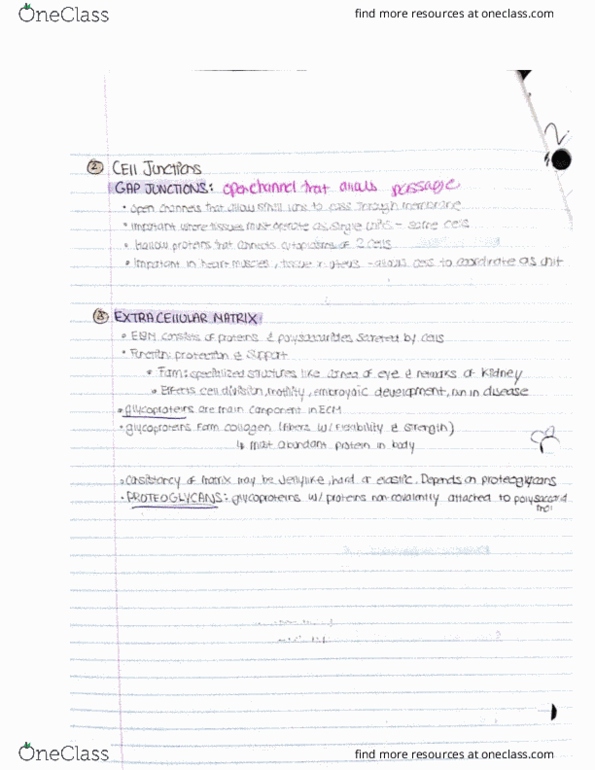 OneClass
find more resources at oneclass.com
2
② Cell Junctions
GAP JUNCTIONS: open channel that allows passage
• Open channels that allow small ions to pass through membrane
• Important where tissues must operate as single units - same cells
• Hollow proteins that connects cytoplasms of 2 cells
• Important in heart muscles, tissue - allows cells to coordinate as unit
③ EXTRACELLULAR MATRIX
• consists of proteins & polysaccarides secreted by cells
• Function: protection & support
• Form: specialized structures like cornea of eye & networks of kidney
• Effects cell division, motility, embryoic development, run in disease
• glycoproteins are main component in ECM
• glycoproteins form collagen (fibers w/ flexibility & strength)
↳ most abundant protein in body
• Consistancy of matrix may be Jellylike, hard or elastic. Depends on proteoglycans
• PROTEOGLYCANS: glycoproteins w/ proteins non-covalently attached to
OneClass
find more resources at oneclass.com